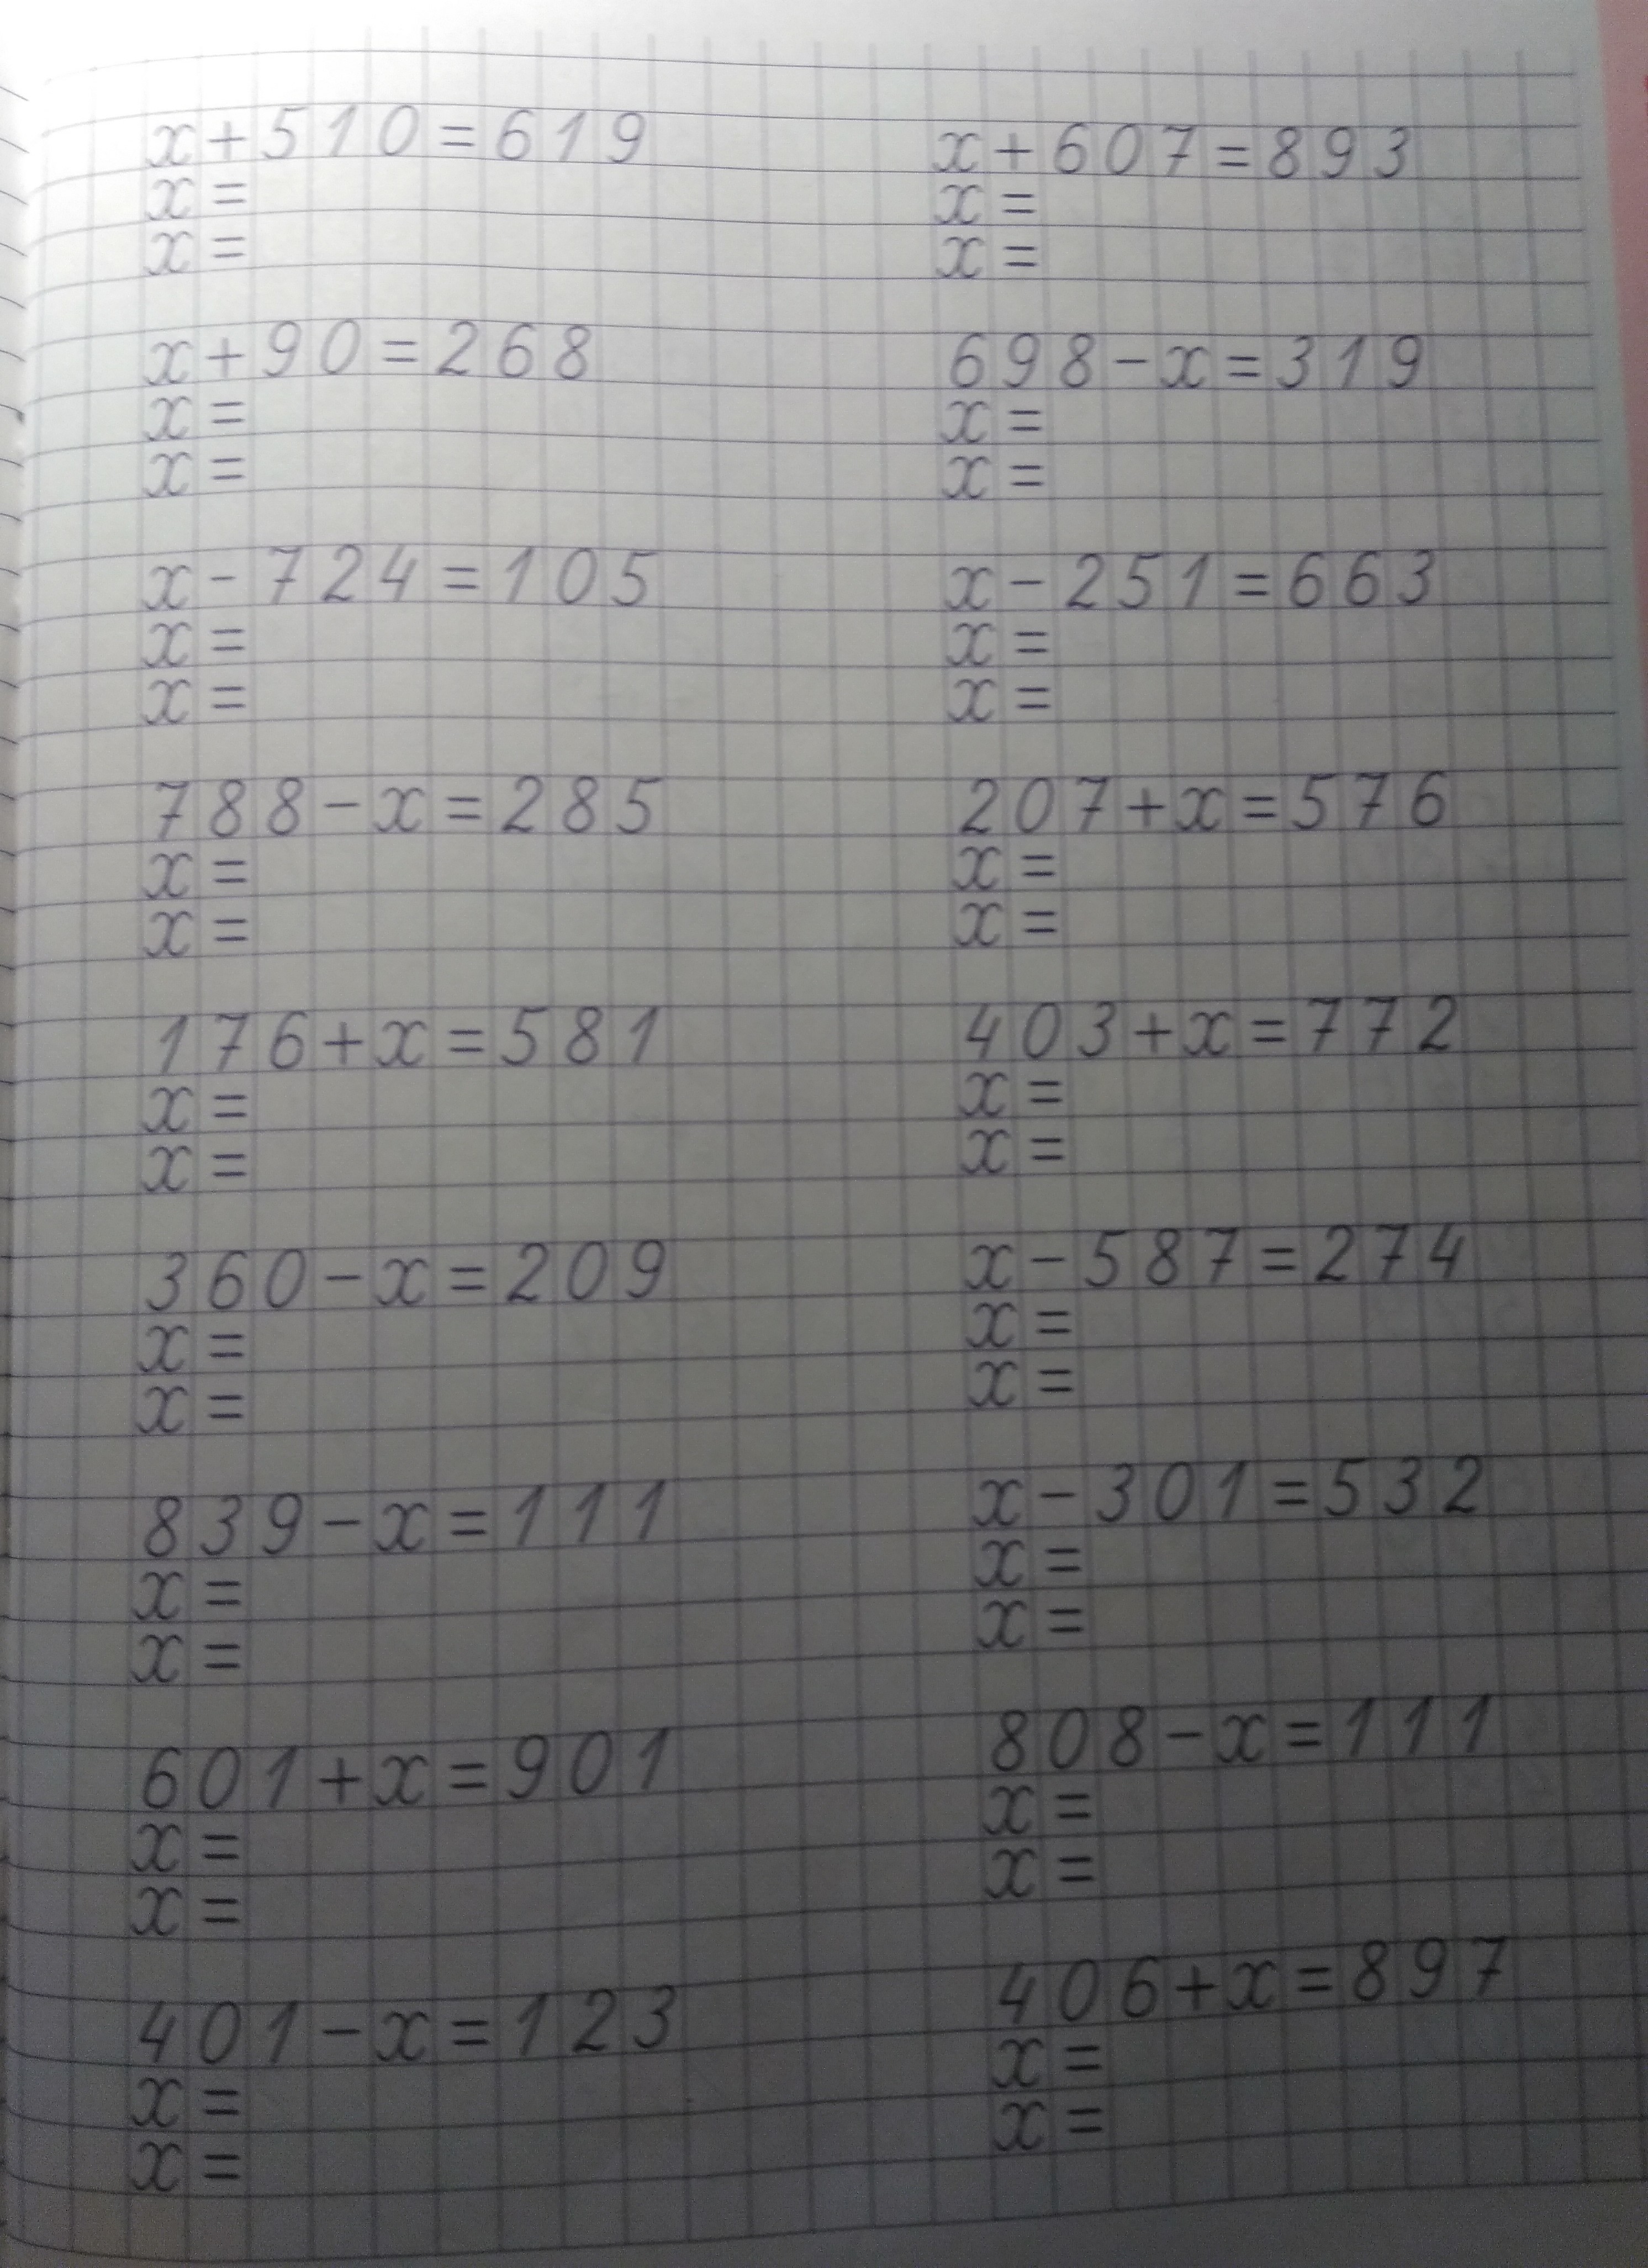 x+510=619
x=
x=
x+90=268
x=
x=
x-724=105
x=
x=
788-x=285
x=
x=
176+x=581
x=
x=
360-x=209
x=
x=
839-x=111
x=
x=
601+x=901
x=
x=
401-x=123
x=
x=
x+607=893
x=
x=
698-x=319
x=
x=
x-251=663
x=
x=
207+x=576
x=
x=
403+x=772
x=
x=
x-587=274
x=
x=
x-301=532
x=
x=
808-x=111
x=
x=
406+x=897
x=
x=